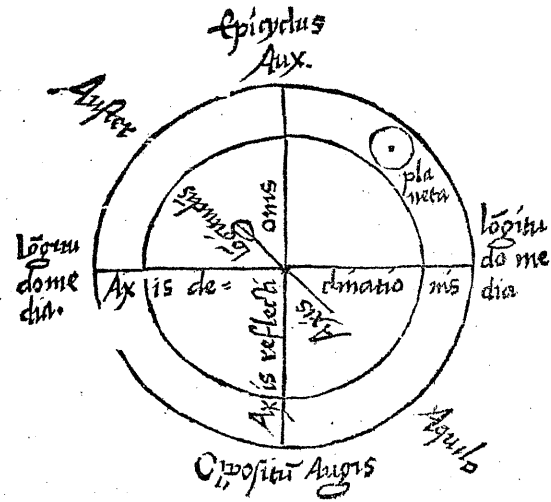 Epicyclus
Aux.
Auster
planeta
lõgitu
do me
dia.
lõgitu
do me
dia
Axis de=
clinatio nis
Axis reflecti
onis
Axis
Aquilo
Oppositũ Augis